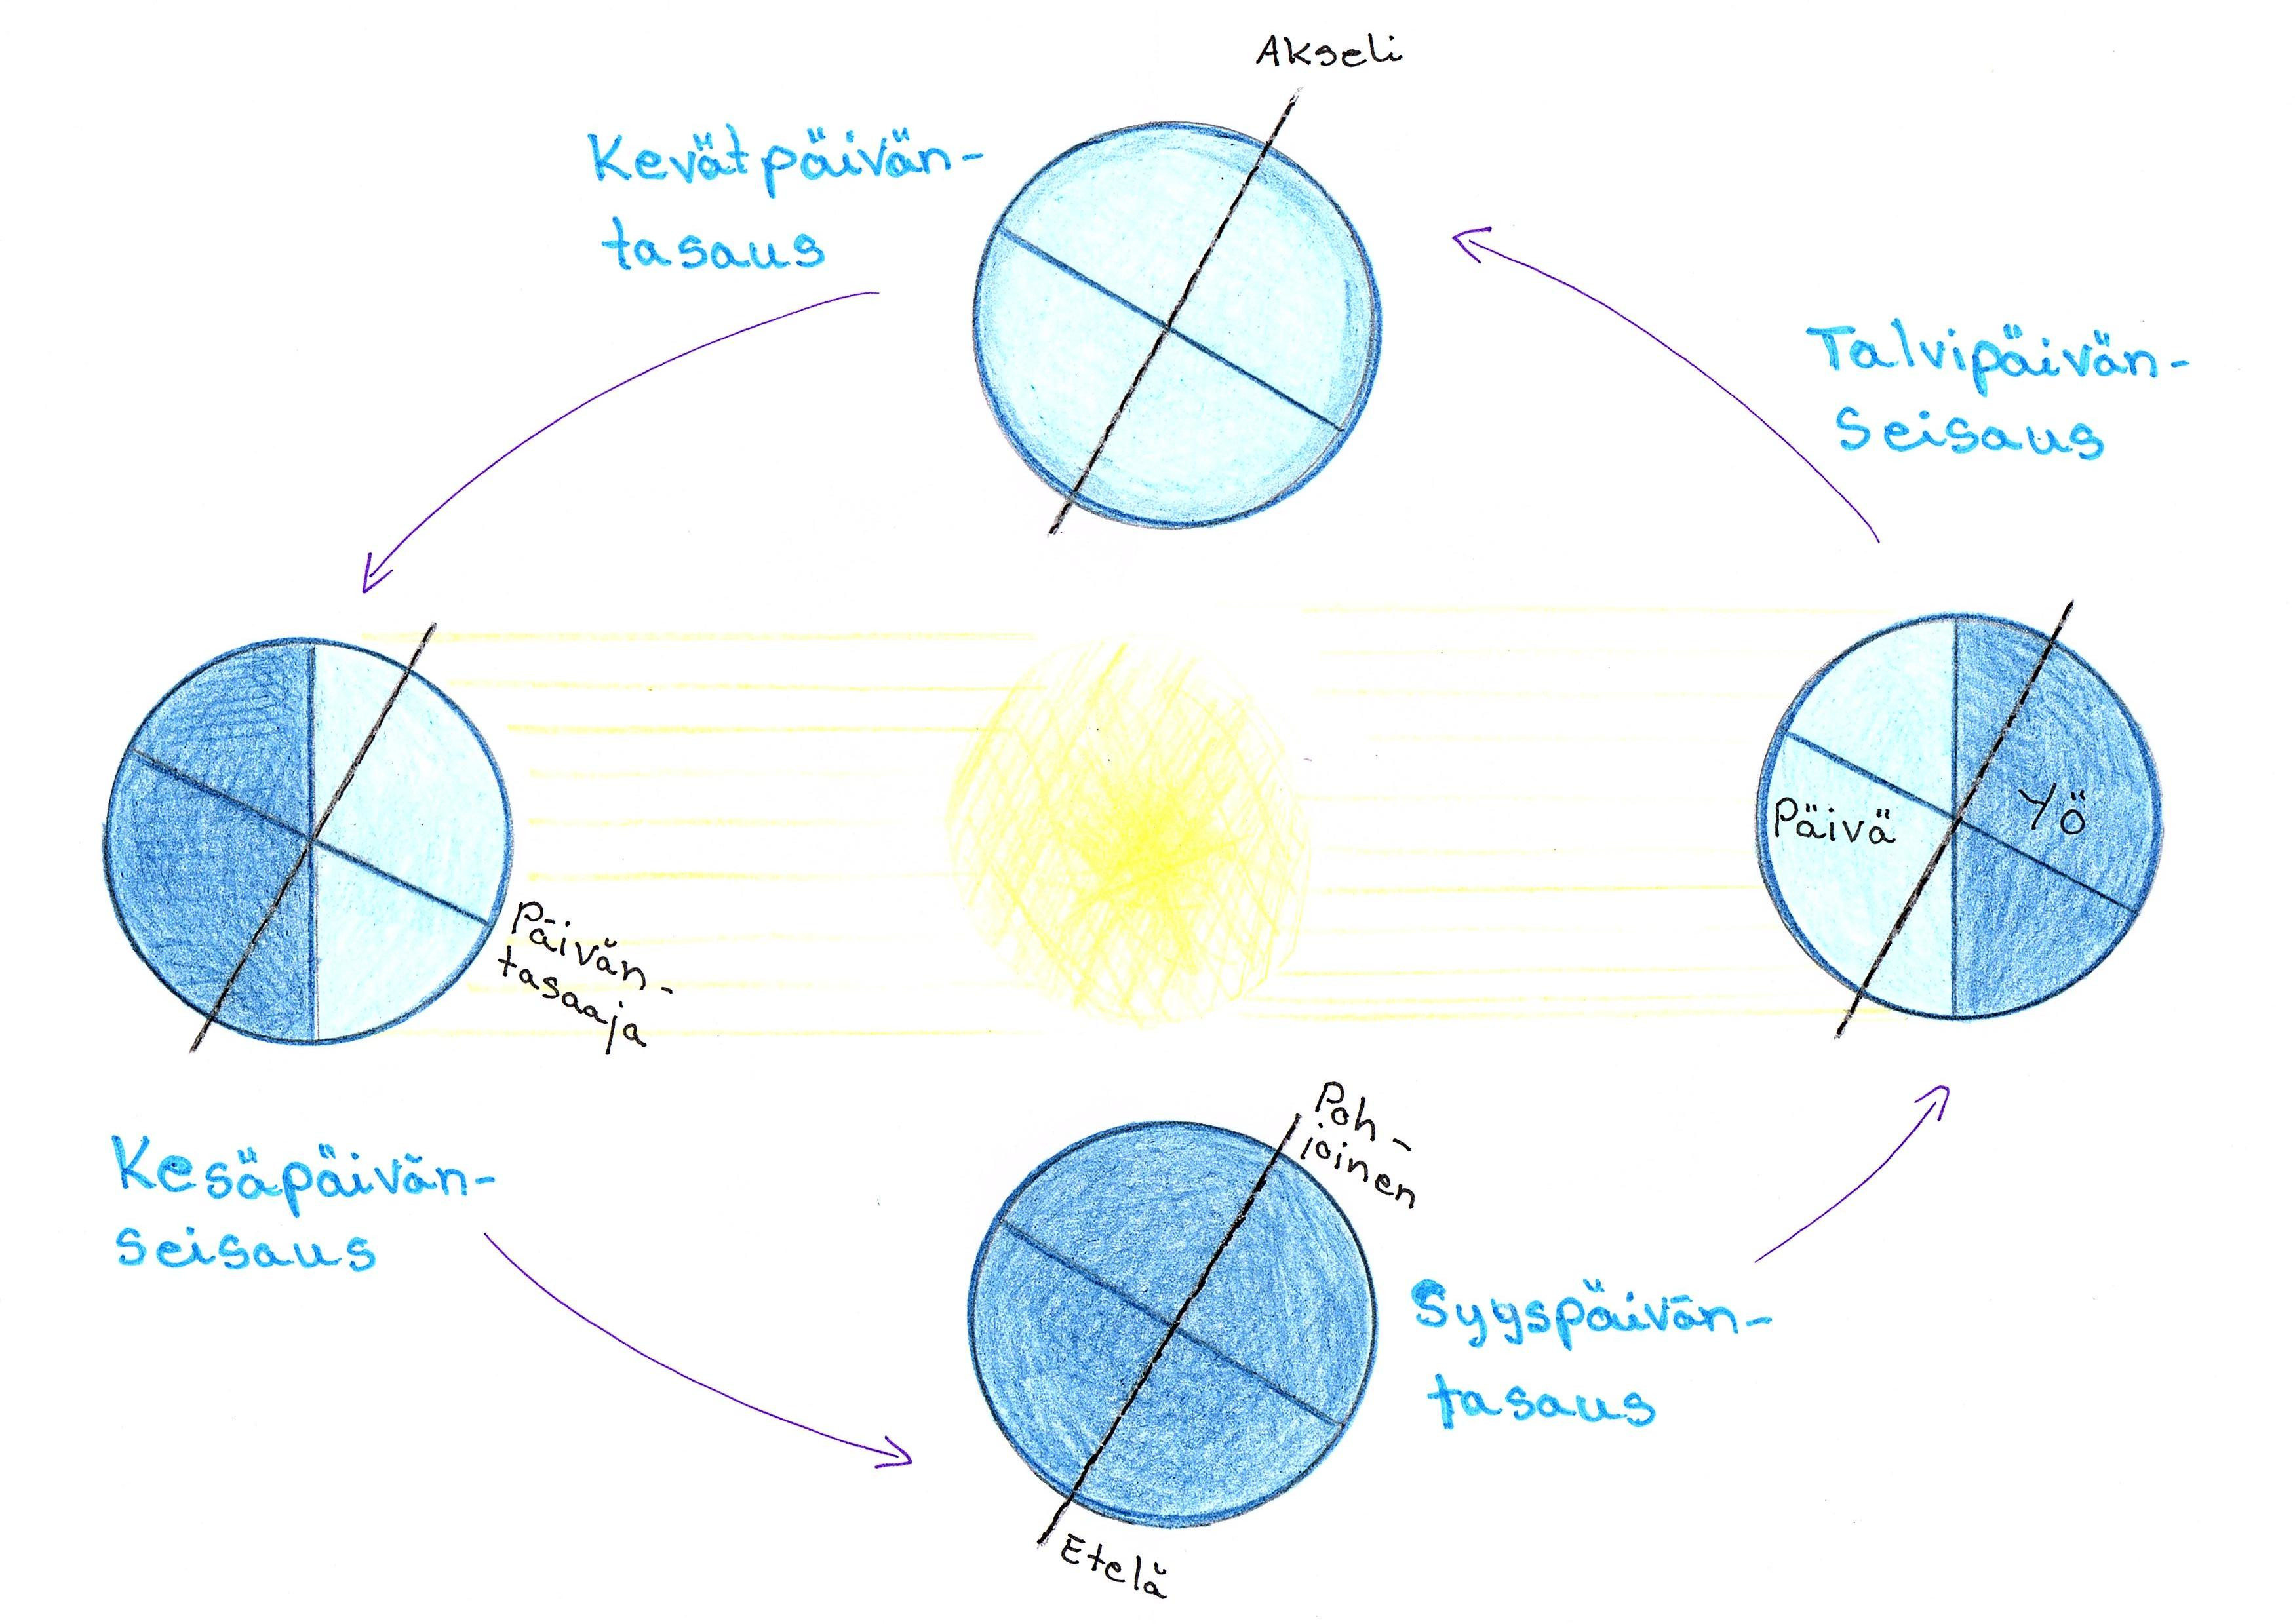 Akseli
Kevätpäivän-
tasaus
Talvipäivän-
seisaus
Päivä
Yö
Päivän-
tasaaja
Poh-
joinen
Kesäpäivän-
seisaus
Syyspäivän-
tasaus
Etelä